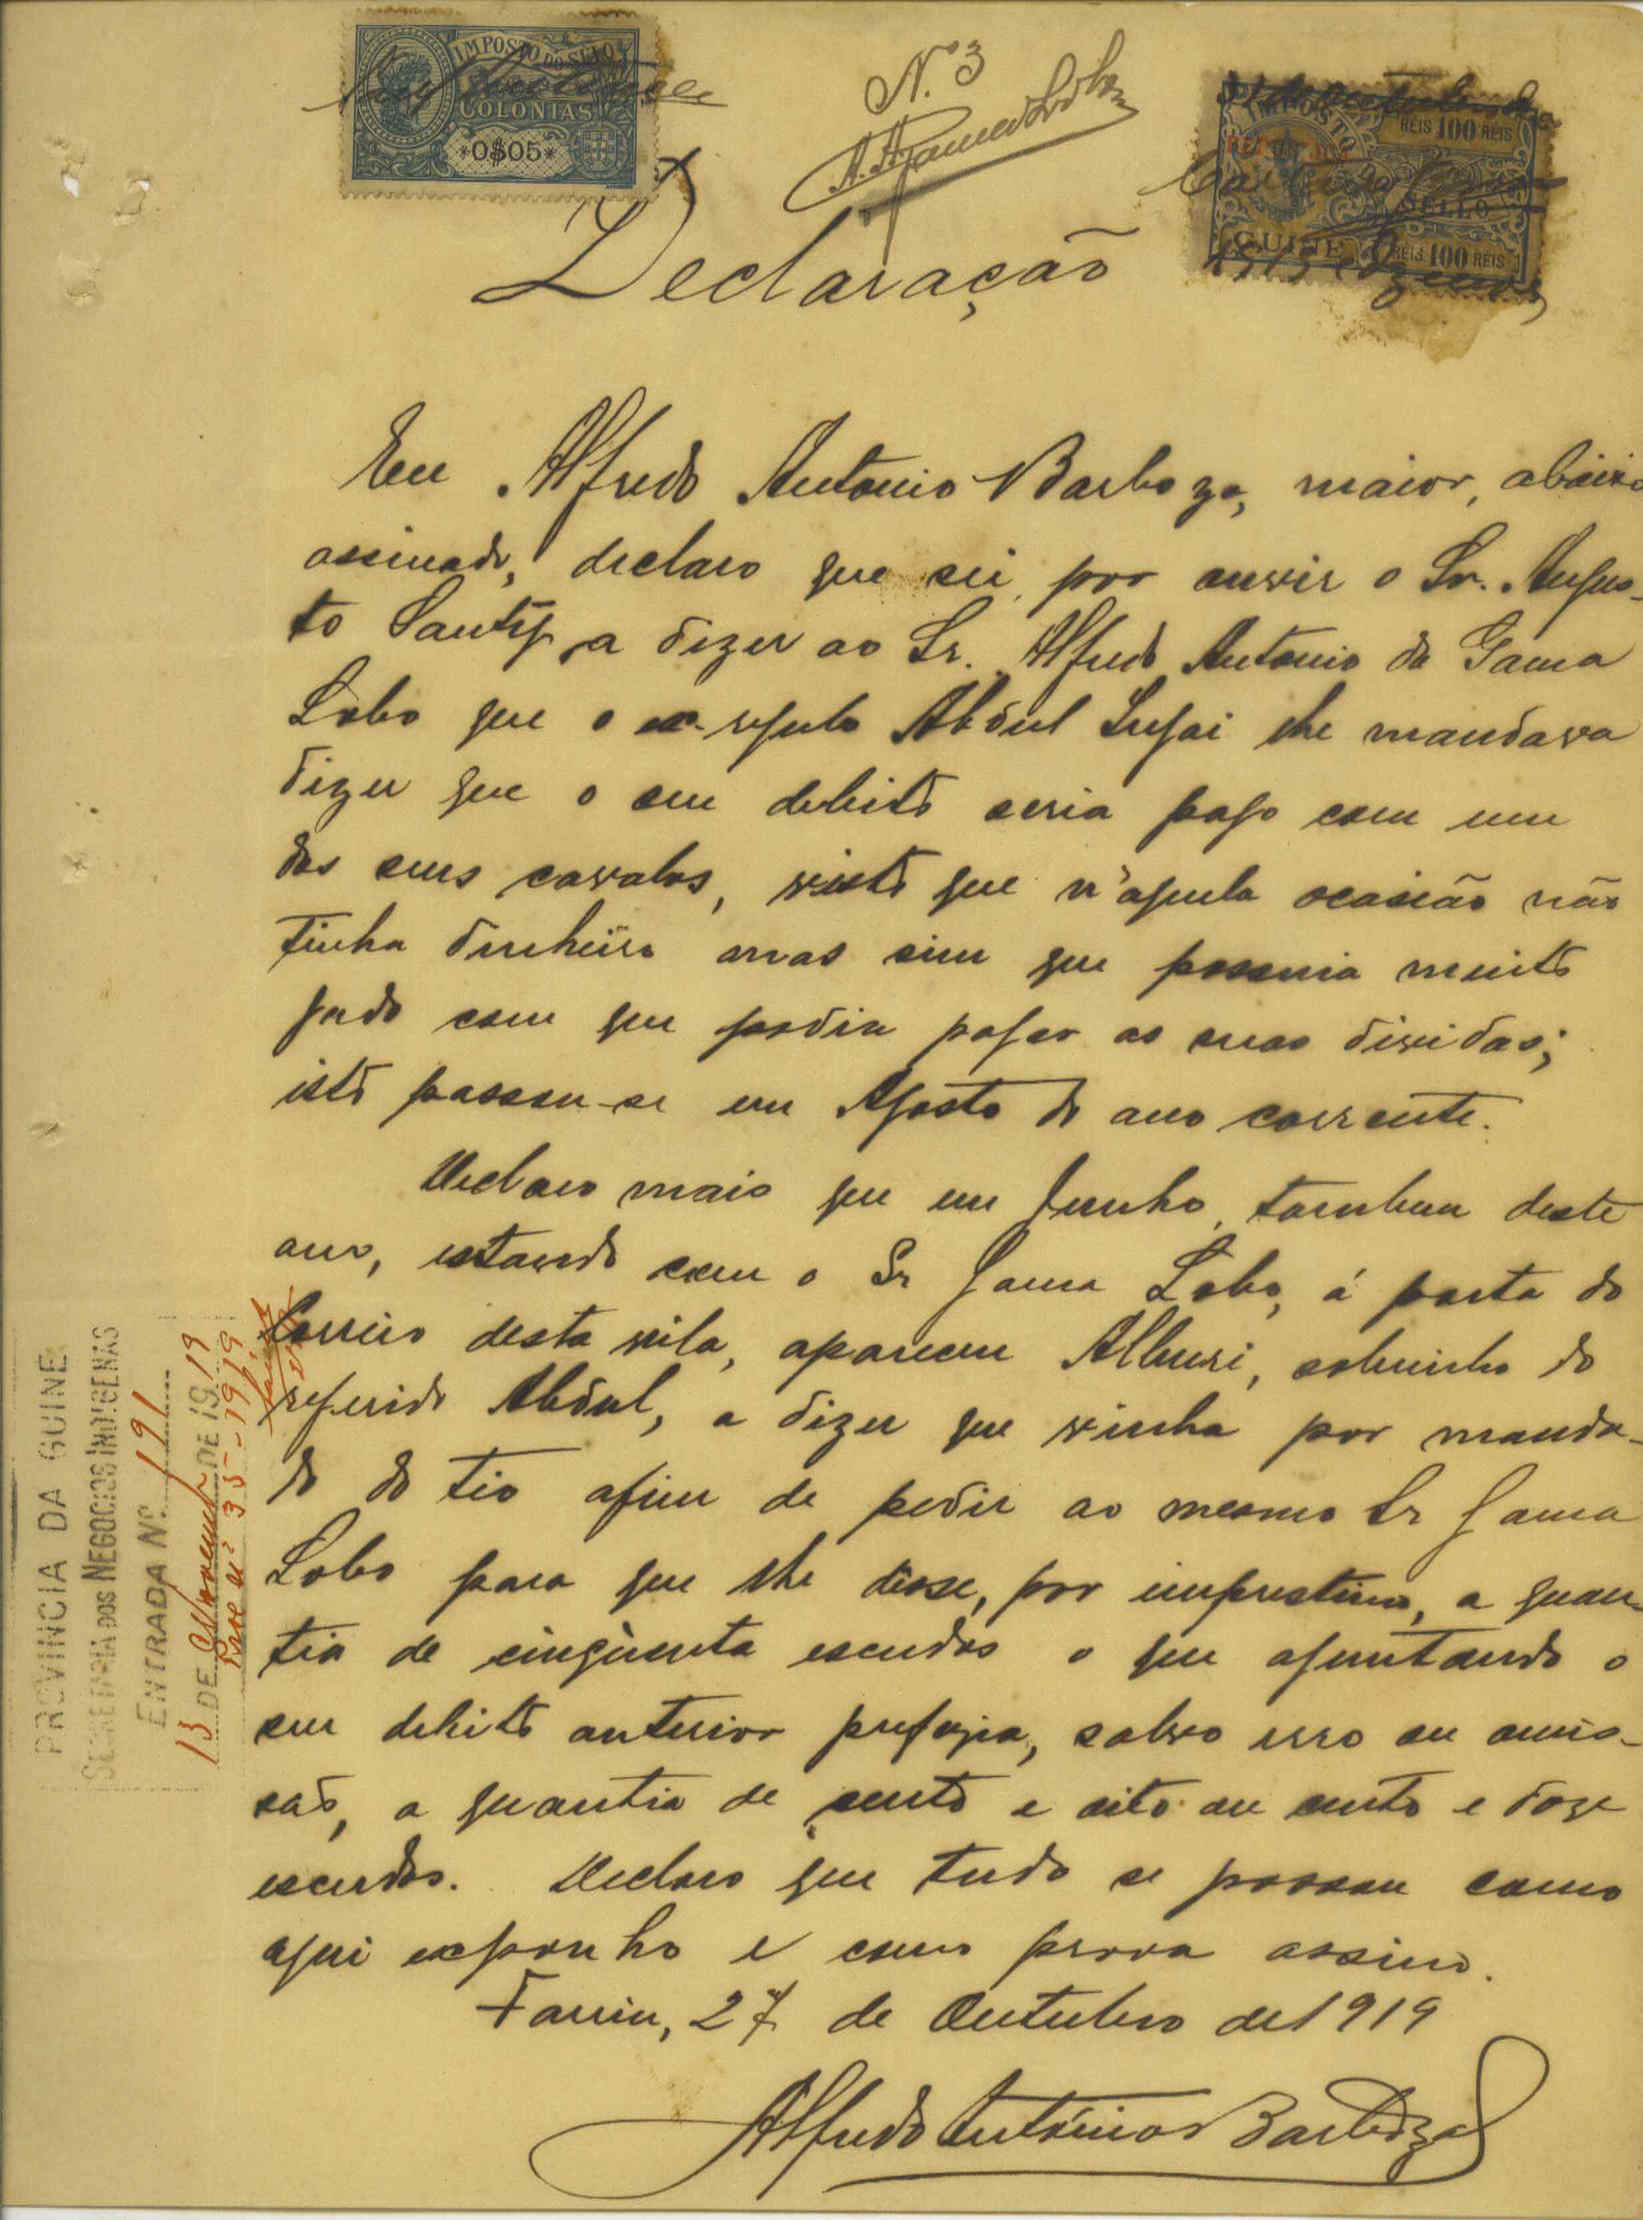 IMPOSTO DO SELO
COLONIAS
*0$05*
N.º 3
A. A. Gama Lobo
IMPOSTO
REIS 100 REIS
SELLO
GUINÉ
REIS 100 REIS
Declaração
Eu Alfredo Antonio Barboza, maior, abaixo
assinado, declaro que sei, por ouvir o Sr. Augus-
to a dizer ao Sr. Alfredo Antonio da Gama
Lobo que o ex-regulo Abdul lhe mandava
dizer que o seu debito seria pago com um
dos seus cavalos, visto que n'aquela ocasião não
tinha dinheiro mas sim que possuia muito
gado com que podia pagar as suas dividas;
isto passou-se em Agosto do ano corrente.
Declaro mais que em Junho, tambem deste
ano, estando com o Sr Gama Lobo, á porta do
Correio desta vila, apareceu sobrinho do
referido Abdul, a dizer que vinha por manda-
do do tio afim de pedir ao mesmo Sr Gama
Lobo para que lhe desse, por emprestimo, a quan-
tia de cinqüenta escudos o que ajuntando o
seu debito anterior prefazia, salvo erro ou omis-
são, a quantia de cento e oito ou cento e doze
escudos. Declaro que tudo se passou como
aqui exponho e como prova assino.
Farim, 27 de Outubro de 1919
Alfredo António Barboza
PROVINCIA DA GUINÉ
SECRETARIA DOS NEGOCIOS INDIGENAS
ENTRADA Nº 191
13 DE Novembro DE 1919
Proc nº 35-1919